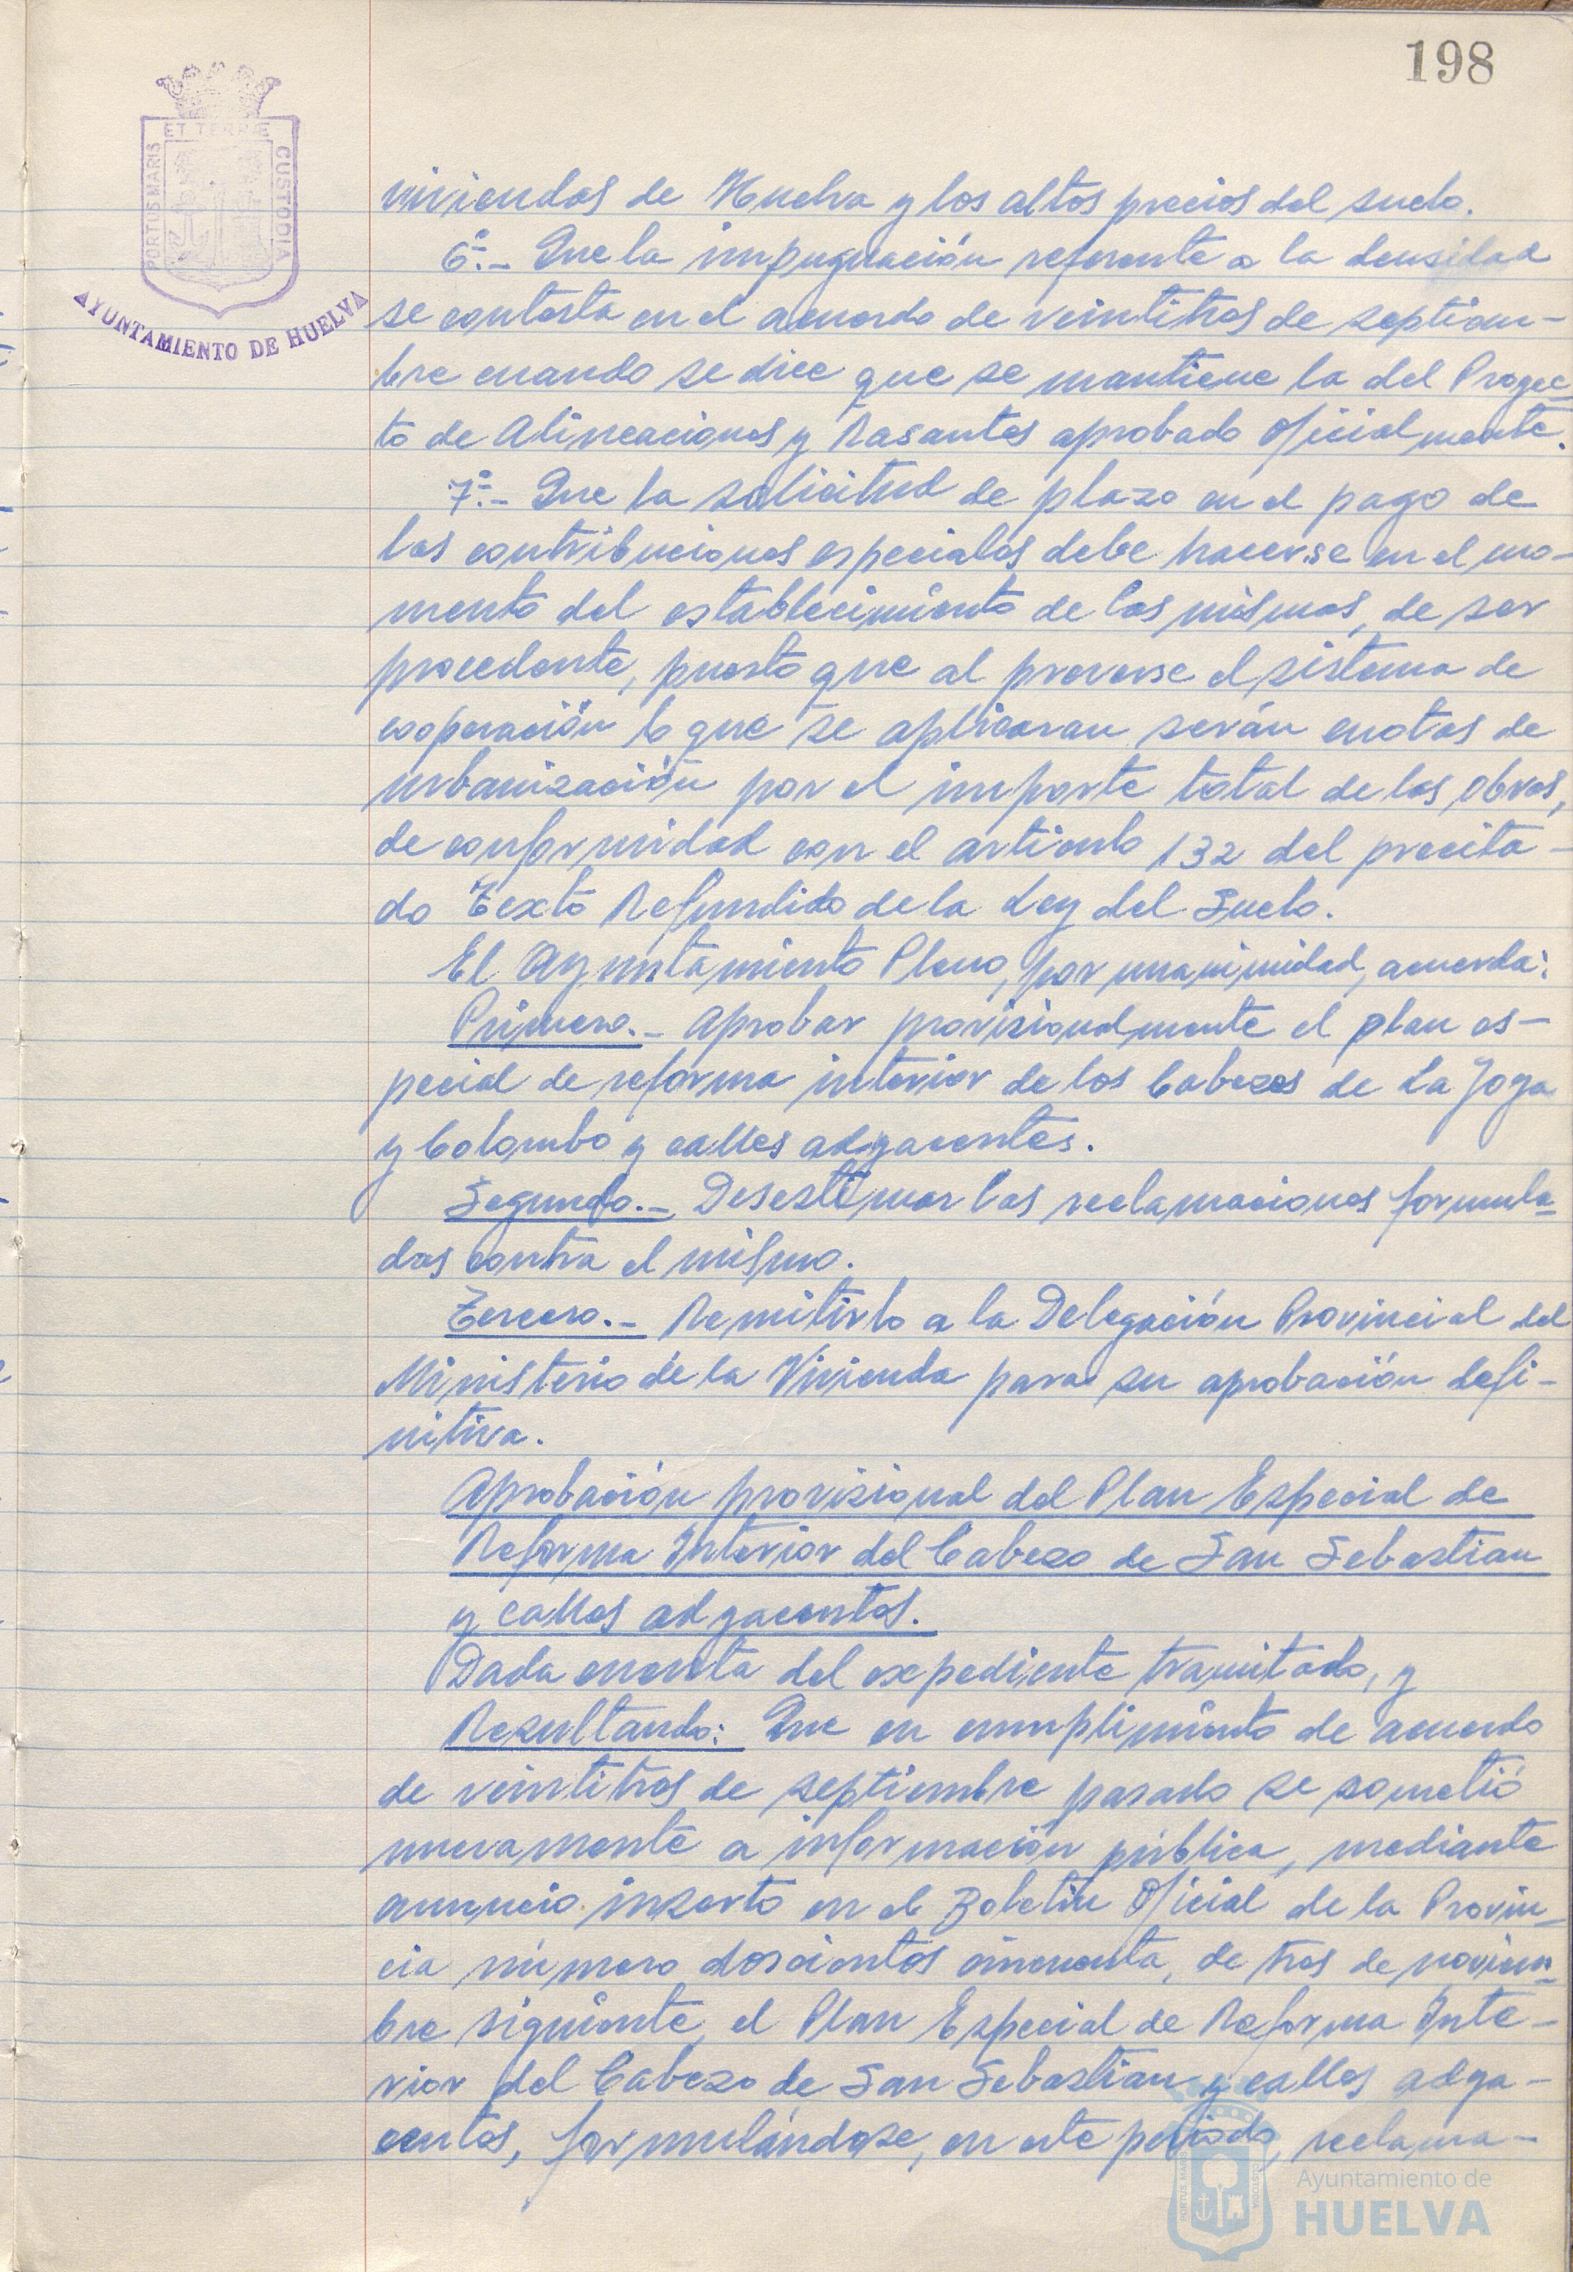 198
ET TERRÆ
PORTUS MARIS
CUSTODIA
AYUNTAMIENTO DE HUELVA
viviendas de Huelva y los altos precios del suelo.
6º.- Que la impugnación referente a la densidad
se contesta en el acuerdo de veintitres de septiem-
bre cuando se dice que se mantiene la del Proyec-
to de Alineaciones y Rasantes aprobado oficialmente.
7º.- Que la solicitud de plazo en el pago de
las contribuciones especiales debe hacerse en el mo-
mento del establecimiento de las mismas, de ser
procedente, puesto que al preverse el sistema de
cooperación lo que se aplicaran serán cuotas de
urbanización por el importe total de las obras,
de conformidad con el artículo 132 del precita-
do Texto Refundido de la Ley del Suelo.
El Ayuntamiento Pleno, por unanimidad, acuerda:
Primero.- Aprobar provisionalmente el plan es-
pecial de reforma interior de los Cabezos de La Joya
y Colombo y calles adyacentes.
Segundo.- Desestimar las reclamaciones formula-
das contra el mismo.
Tercero.- Remitirlo a la Delegación Provincial del
Ministerio de la Vivienda para su aprobación defi-
nitiva.
Aprobación provisional del Plan Especial de
Reforma Interior del Cabezo de San Sebastian
y calles adyacentes.
Dada cuenta del expediente tramitado, y
Resultando: Que en cumplimiento de acuerdo
de veintitres de septiembre pasado se sometió
nuevamente a información pública, mediante
anuncio inserto en el Boletin Oficial de la Provin-
cia número doscientos cincuenta, de tres de noviem-
bre siguiente, el Plan Especial de Reforma Inte-
rior del Cabezo de San Sebastian y calles adya-
centes, formulándose, en este periodo, reclama-
PORTUS MARIS
CUSTODIA
Ayuntamiento de
HUELVA